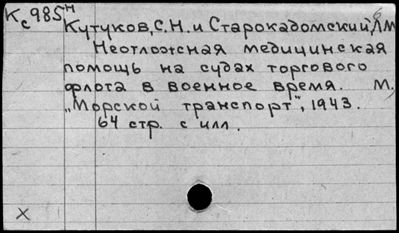 Кс985н
Кутуков, С.Н. и Старокадомский, Л.М.
Неотложная медицинская
помощь на судах торгового
флота в военное время. М.,
„Морской транспорт", 1943.
64 стр. с илл.
X